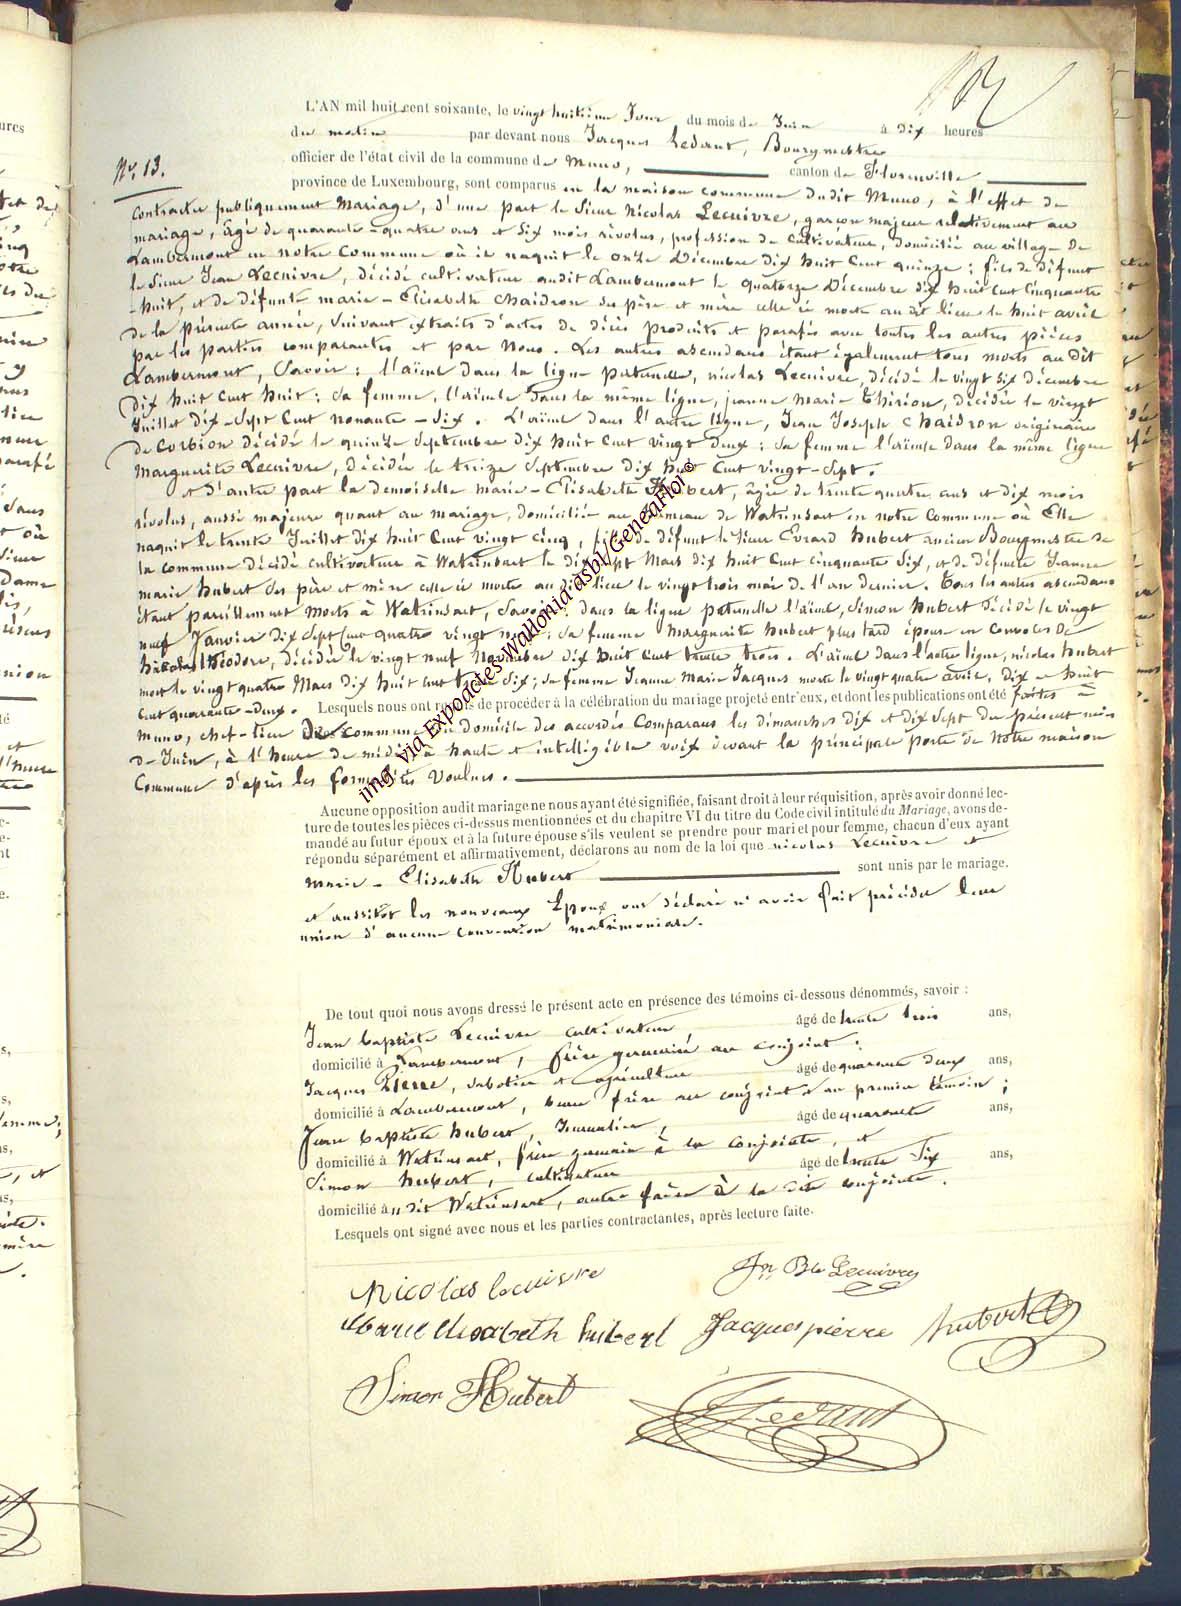 L'AN mil huit cent soixante, le vingt huitième Jour du mois de Juin à dix heures
du matin par devant nous Jacques Ledant, Bourgmestre
officier de l'état civil de la commune de Muno, canton de Florenville
N.º 13.
province de Luxembourg, sont comparus en la maison commune dudit Muno, à l'effet de
contracter publiquement mariage, d'une part le Sieur Nicolas Lecuivre, garçon majeur relativement au
mariage, âgé de quarante-quatre ans et six mois révolus, profession de cultivateur, domicilié au village de
Lambermont en notre commune où il naquit le onze Décembre dix huit cent quinze ; fils de défunt
le Sieur Jean Lecuivre, décédé cultivateur audit Lambermont le quatorze Décembre dix huit cent cinquante
-huit, et de défunte marie-Elisabeth Chaidron ses père et mère celle ci morte au dit lieu le huit avril
de la présente année, suivant extraits d'actes de décès produits et parafés avec toutes les autres pièces
par les parties comparantes et par Nous. Les autres ascendans étant également tous morts au dit
Lambermont, Savoir : l'aïeul dans la ligne paternelle, nicolas Lecuivre, décédé le vingt six décembre
dix huit cent huit ; sa femme, l'aïeule dans la même ligne, jeanne marie Thirion, décédée le vingt
Juillet dix-sept cent nonante-six. L'aïeul dans l'autre ligne, Jean Joseph Chaidron originaire
de Corbion décédé le quinze septembre dix huit cent vingt deux : sa femme l'aïeule dans la même ligne
Marguerite Lecuivre, décédée le treize Septembre dix huit cent vingt-sept.
et d'autre part la demoiselle marie-Elisabeth Hubert, âgée de trente quatre ans et dix mois
révolus, aussi majeure quant au mariage, domiciliée au hameau de Watrinsart en notre commune où Elle
naquit le trente Juillet dix huit cent vingt cinq, fille de défunt le Sieur Evrard hubert ancien Bourgmestre de
la commune décédé cultivateur à Watrinsart le dix sept Mars dix huit cent cinquante six, et de défunte Jeanne
marie hubert ses père et mère celle ci morte au dit lieu le vingt trois mai de l'an dernier. Tous les autres ascendans
étant pareillement morts à Watrinsart, Savoir : dans la ligne paternelle l'aïeul, Simon hubert décédé le vingt
neuf Janvier dix sept cent quatre vingt ; sa femme Marguerite hubert plus tard épouse en convoles de
Théodore, décédée le vingt neuf Novembre dix huit cent trente trois. L'aïeul dans l'autre ligne, nicolas hubert
mort le vingt quatre Mars dix huit cent trente Six ; sa femme Jeanne Marie Jacques morte le vingt quatre avril, dix huit
cent quarante-deux. Lesquels nous ont requis de procéder à la célébration du mariage projeté entr'eux, et dont les publications ont été faites à
Muno, chef-lieu de commune du domicile des accordés comparans les dimanches dix et dix sept du présent mois
de Juin, à l'heure de midi à haute et intelligible voix devant la principale porte de Notre maison
Commune d'après les formalités voulues.
Aucune opposition audit mariage ne nous ayant été signifiée, faisant droit à leur réquisition, après avoir donné lec-
ture de toutes les pièces ci-dessus mentionnées et du chapitre VI du titre du Code civil intitulé du Mariage, avons de-
mandé au futur époux et à la future épouse s'ils veulent se prendre pour mari et pour femme, chacun d'eux ayant
répondu séparément et affirmativement, déclarons au nom de la loi que nicolas Lecuivre et
marie-Elisabeth Hubert sont unis par le mariage.
et aussitôt les nouveaux Epoux ont déclaré n'avoir fait précéder leur
union d'aucune convention matrimoniale.
De tout quoi nous avons dressé le présent acte en présence des témoins ci-dessous dénommés, savoir :
Jean baptiste Lecuivre cultivateur, âgé de trente trois ans,
domicilié à Lambermont, frère germain au conjoint ;
Jacques Pierre, sabotier et agriculteur âgé de quarante deux ans,
domicilié à Lambermont, beau frère au conjoint et au premier témoin ;
Jean baptiste hubert, Journalier, âgé de quarante ans,
domicilié à Watrinsart, frère germain à la conjointe, et
Simon hubert, cultivateur âgé de trente Six ans,
domicilié à dit Watrinsart, autre frère à la dite conjointe.
Lesquels ont signé avec nous et les parties contractantes, après lecture faite.
Nicolas lecuivre
Jn Bte Lecuivre
Marie elisabeth hubert
Jacques pierre
hubert
Simon Hubert
J Ledant
img. via Expoactes-Wallonia asbl/GeneaFlor©